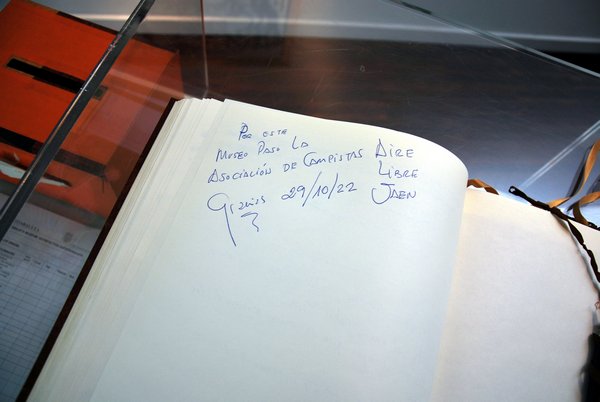 Por este
Museo Paso La
Asociación de Campistas Aire
Libre
Gracias 29/10/22 Jaen